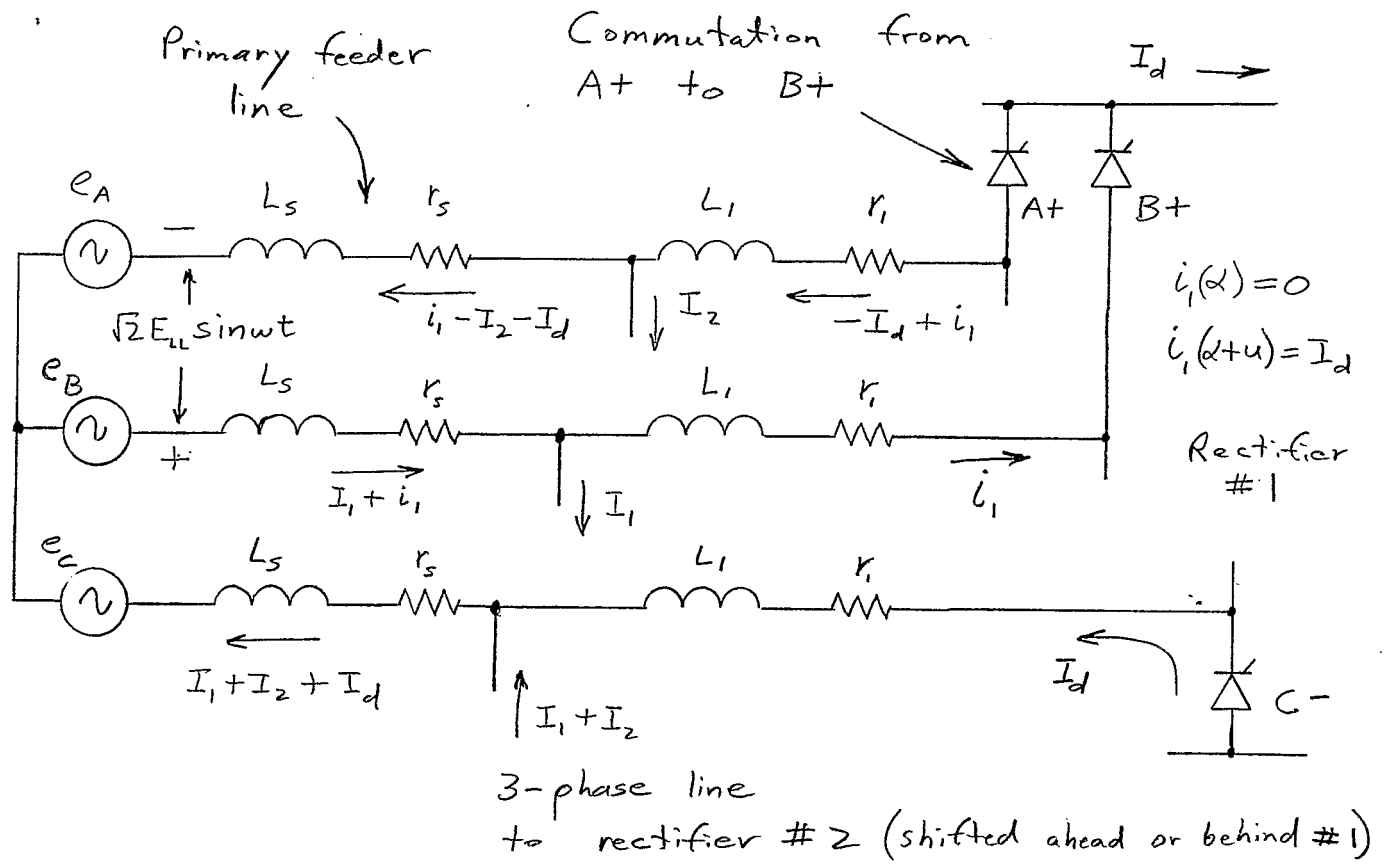 Primary feeder
line
Commutation from
A+ to B+
I_d
e_A
−
L_s
r_s
L_1
r_1
A+
B+
i_1 − I_2 − I_d
I_2
−I_d + i_1
i_1(α) = 0
√2 E_LL sin ωt
i_1(α+u) = I_d
e_B
L_s
r_s
L_1
r_1
+
I_1 + i_1
I_1
i_1
Rectifier
#1
e_C
L_s
r_s
L_1
r_1
I_1 + I_2 + I_d
I_1 + I_2
I_d
C−
3-phase line
to rectifier #2 (shifted ahead or behind #1)